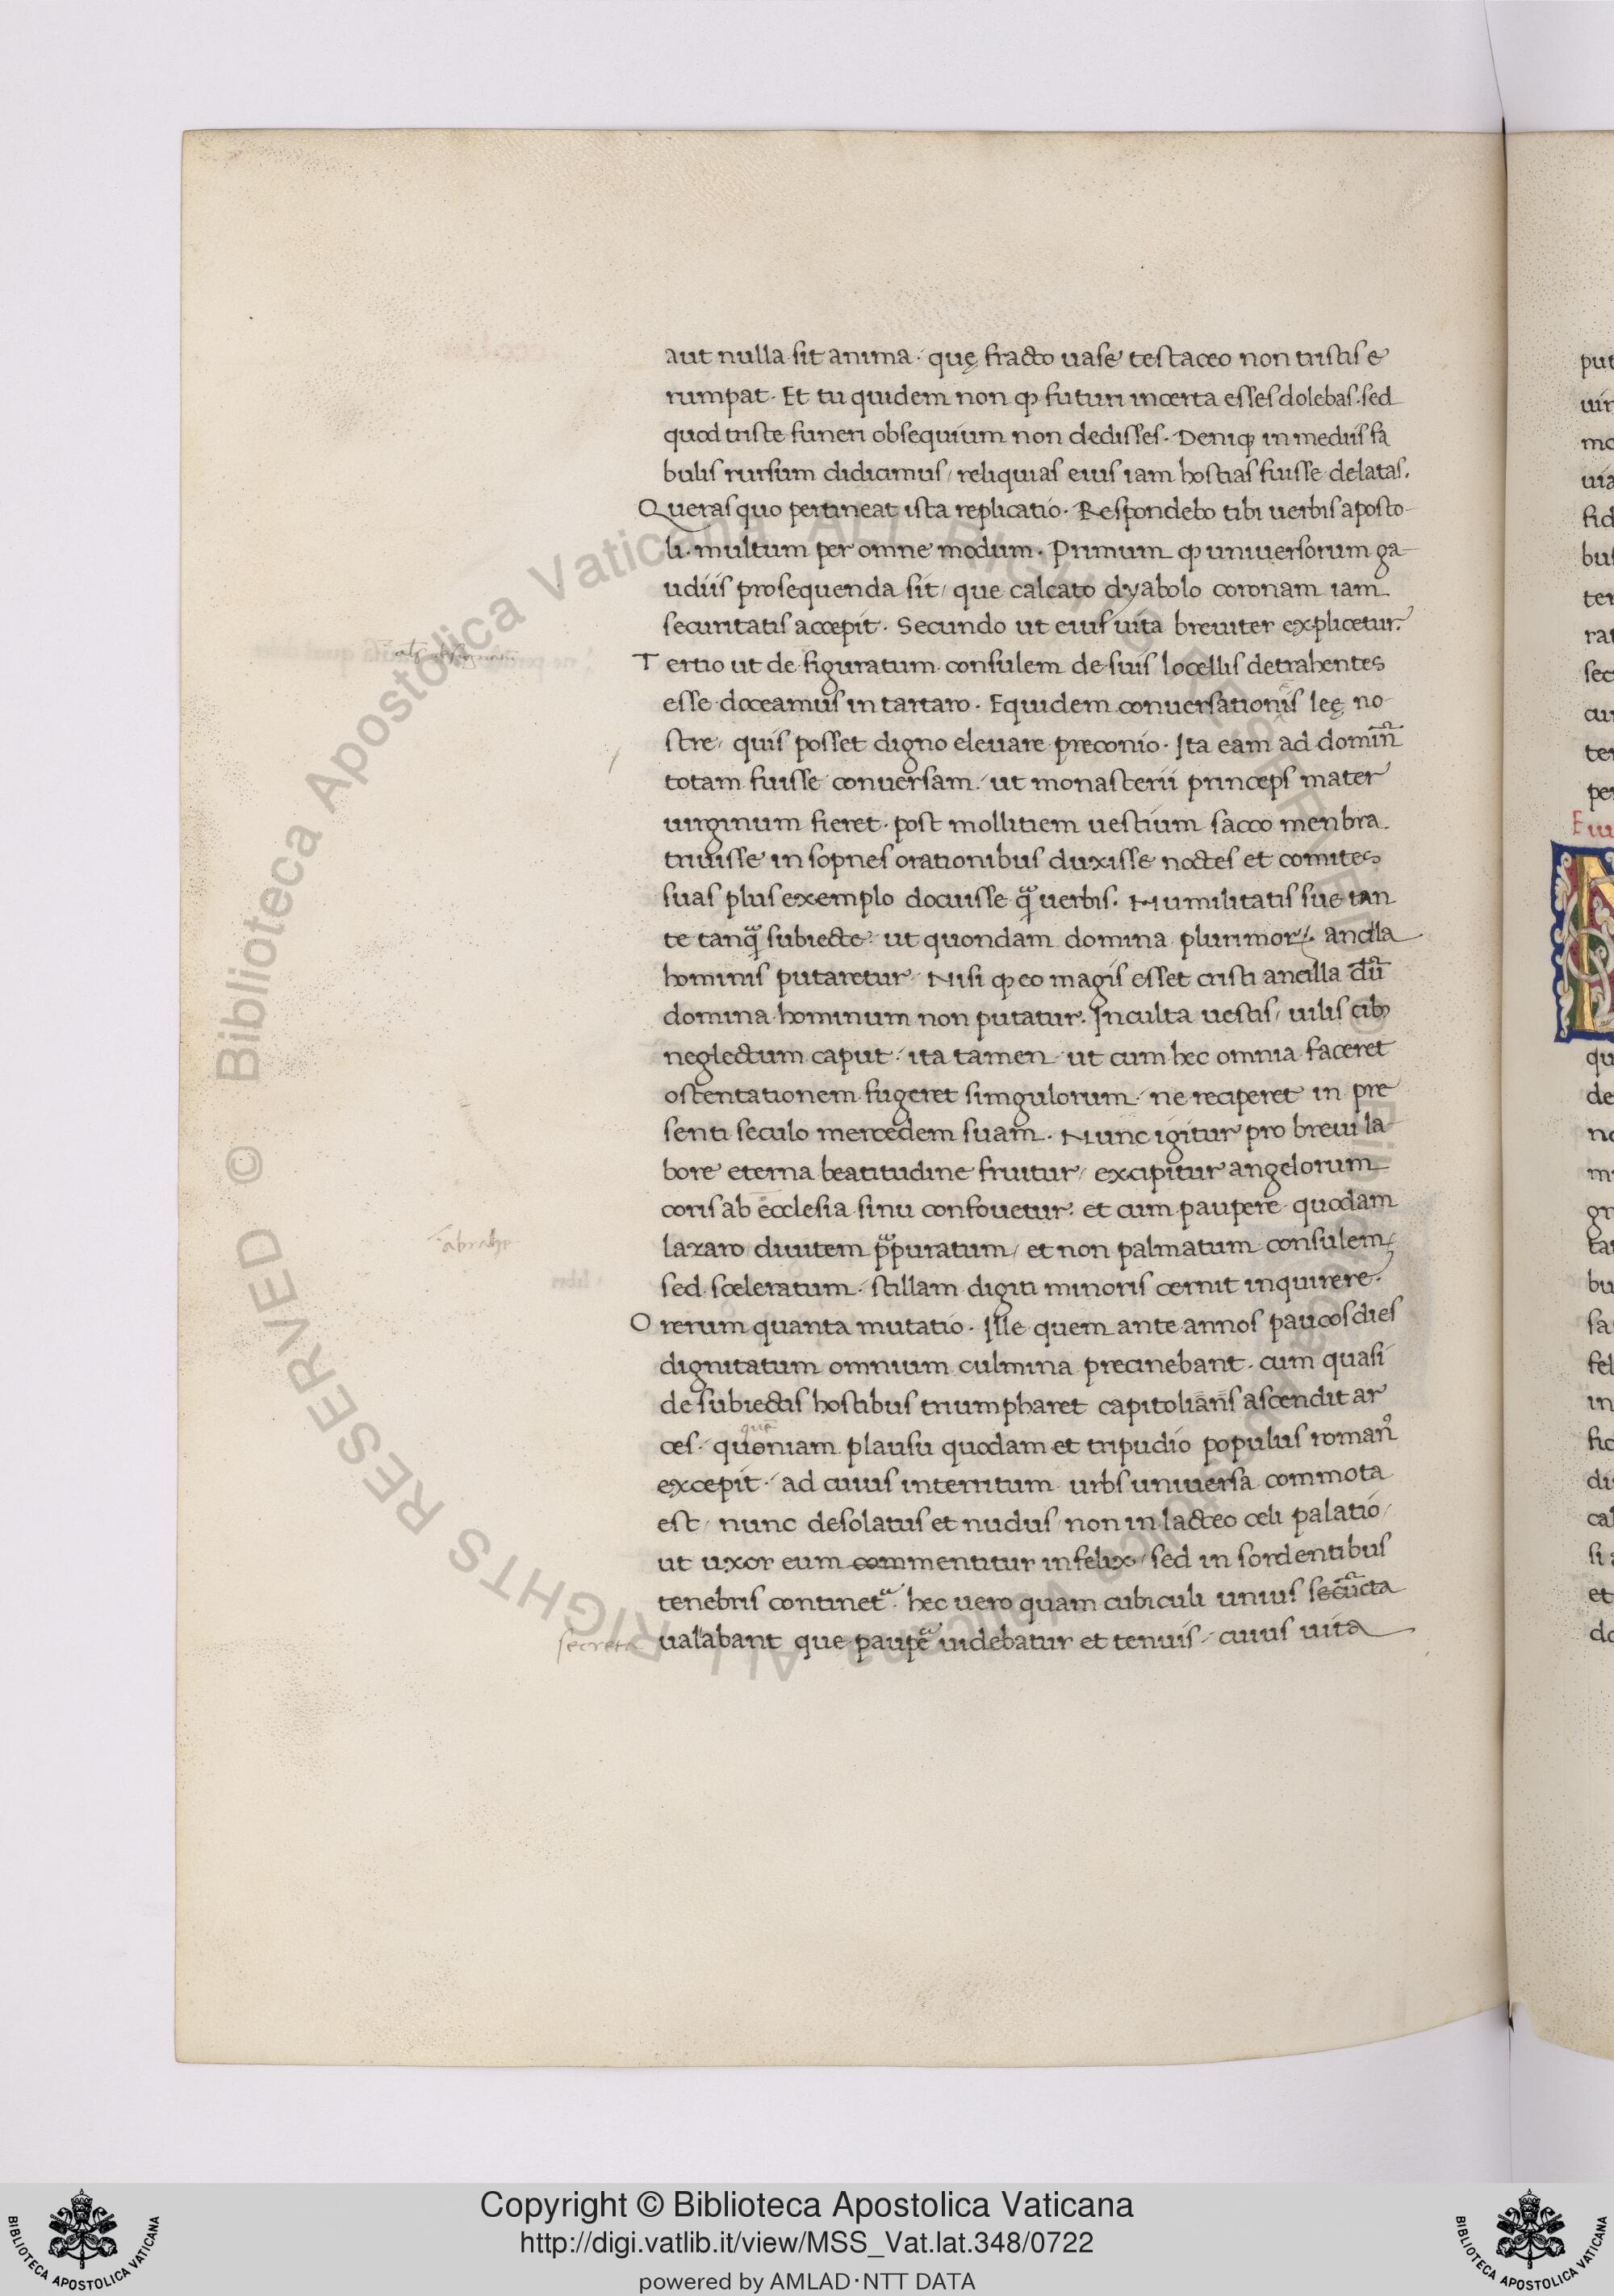 aut nulla sit anima · quę fracto uase testaceo non tristis e
rumpat · Et tu quidem non ꝙ futuri incerta esses dolebas · sed
quod triste funeri obsequium non dedisses · Deniqꝫ in mediis fa
bulis rursum didicimus / reliquias eius iam hostias fuisse delatas.
Queras quo pertineat ista replicatio · Respondebo tibi uerbis aposto-
li · multum per omne modum · Primum ꝙ uniuersorum ga-
udiis prosequenda sit / que calcato dyabolo coronam iam
securitatis accepit · Secundo ut eius uita breuiter explicetur.
Tertio ut de figuratum consulem de suis locellis detrahentes
esse doceamus in tartaro · Equidem conuersationis leę no
stre / quis posset digno eleuare preconio · Ita eam ad domin̄
totam fuisse conuersam / ut monasterii princeps mater
uirginum fieret · post mollitiem uestium sacco menbra
triuisse in sopnes orationibus duxisse noctes et comites
suas plus exemplo docuisse q̄ uerbis · Humilitatis sue tan
te tanq̄ subiecte · ut quondam domina plurimoꝝ ancilla
hominis putaretur · Nisi ꝙ eo magis esset cristi ancilla dū
domina hominum non putatur · Inculta uestis / uilis cibꝰ
neglectum caput · ita tamen ut cum hec omnia faceret
ostentationem fugeret simgulorum · ne reciperet in pre
senti seculo mercedem suam · Nunc igitur pro breui la
bore eterna beatitudine fruitur / excipitur angelorum
coris ab ecclesia sinu confouetur · et cum paupere quodam
abrahe
lazaro diuitem ꝑpuratum / et non palmatum consulem /
sed sceleratum · stillam digiti minoris cernit inquirere.
O rerum quanta mutatio · Ille quem ante annos paucos dies
dignitatum omnium culmina precinebant · cum quasi
de subiectis hostibus triumpharet capitolianis ascendit ar
ces · quoniam plausu quodam et tripudio populus romanꝰ
excepit · ad cuius interritum urbs uniuersa commota
est / nunc desolatus et nudus / non in lacteo celi palatio /
ut uxor eum commentitur infelix / sed in sordentibus
tenebris continet᷑ · hec uero quam cubiculi unius secūcta
secreta ualabant que paupe᷑ uidebatur et tenuis / cuius uita
Copyright © Biblioteca Apostolica Vaticana
http://digi.vatlib.it/view/MSS_Vat.lat.348/0722
powered by AMLAD·NTT DATA
BIBLIOTECA APOSTOLICA VATICANA
BIBLIOTECA APOSTOLICA VATICANA